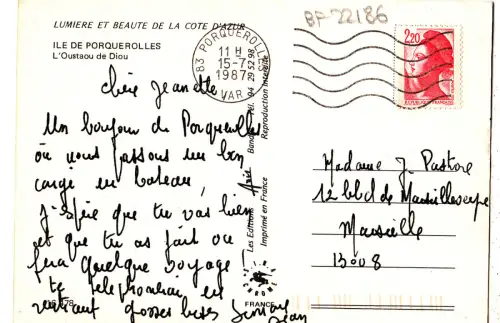 LUMIERE ET BEAUTE DE LA COTE D'AZUR
BF 22186
ILE DE PORQUEROLLES
L'Oustaou de Diou
83 PORQUEROLLES
11 H
15-7
1987
VAR
2,20
REPUBLIQUE FRANCAISE
Chère Jeanette
Un bonjour de Porquerolles
où nous passons un bon
congé en bateau,
J'espère que tu vas bien
et que tu as fait ou
fera quelque voyage
te téléphonerai en
rentrant grosses bises
Les Editions
Imprimé en France
Reproduction interdite
94 29 52 98
Madame J. Pastore
12 blld de
Marseille
13008
FRANCE